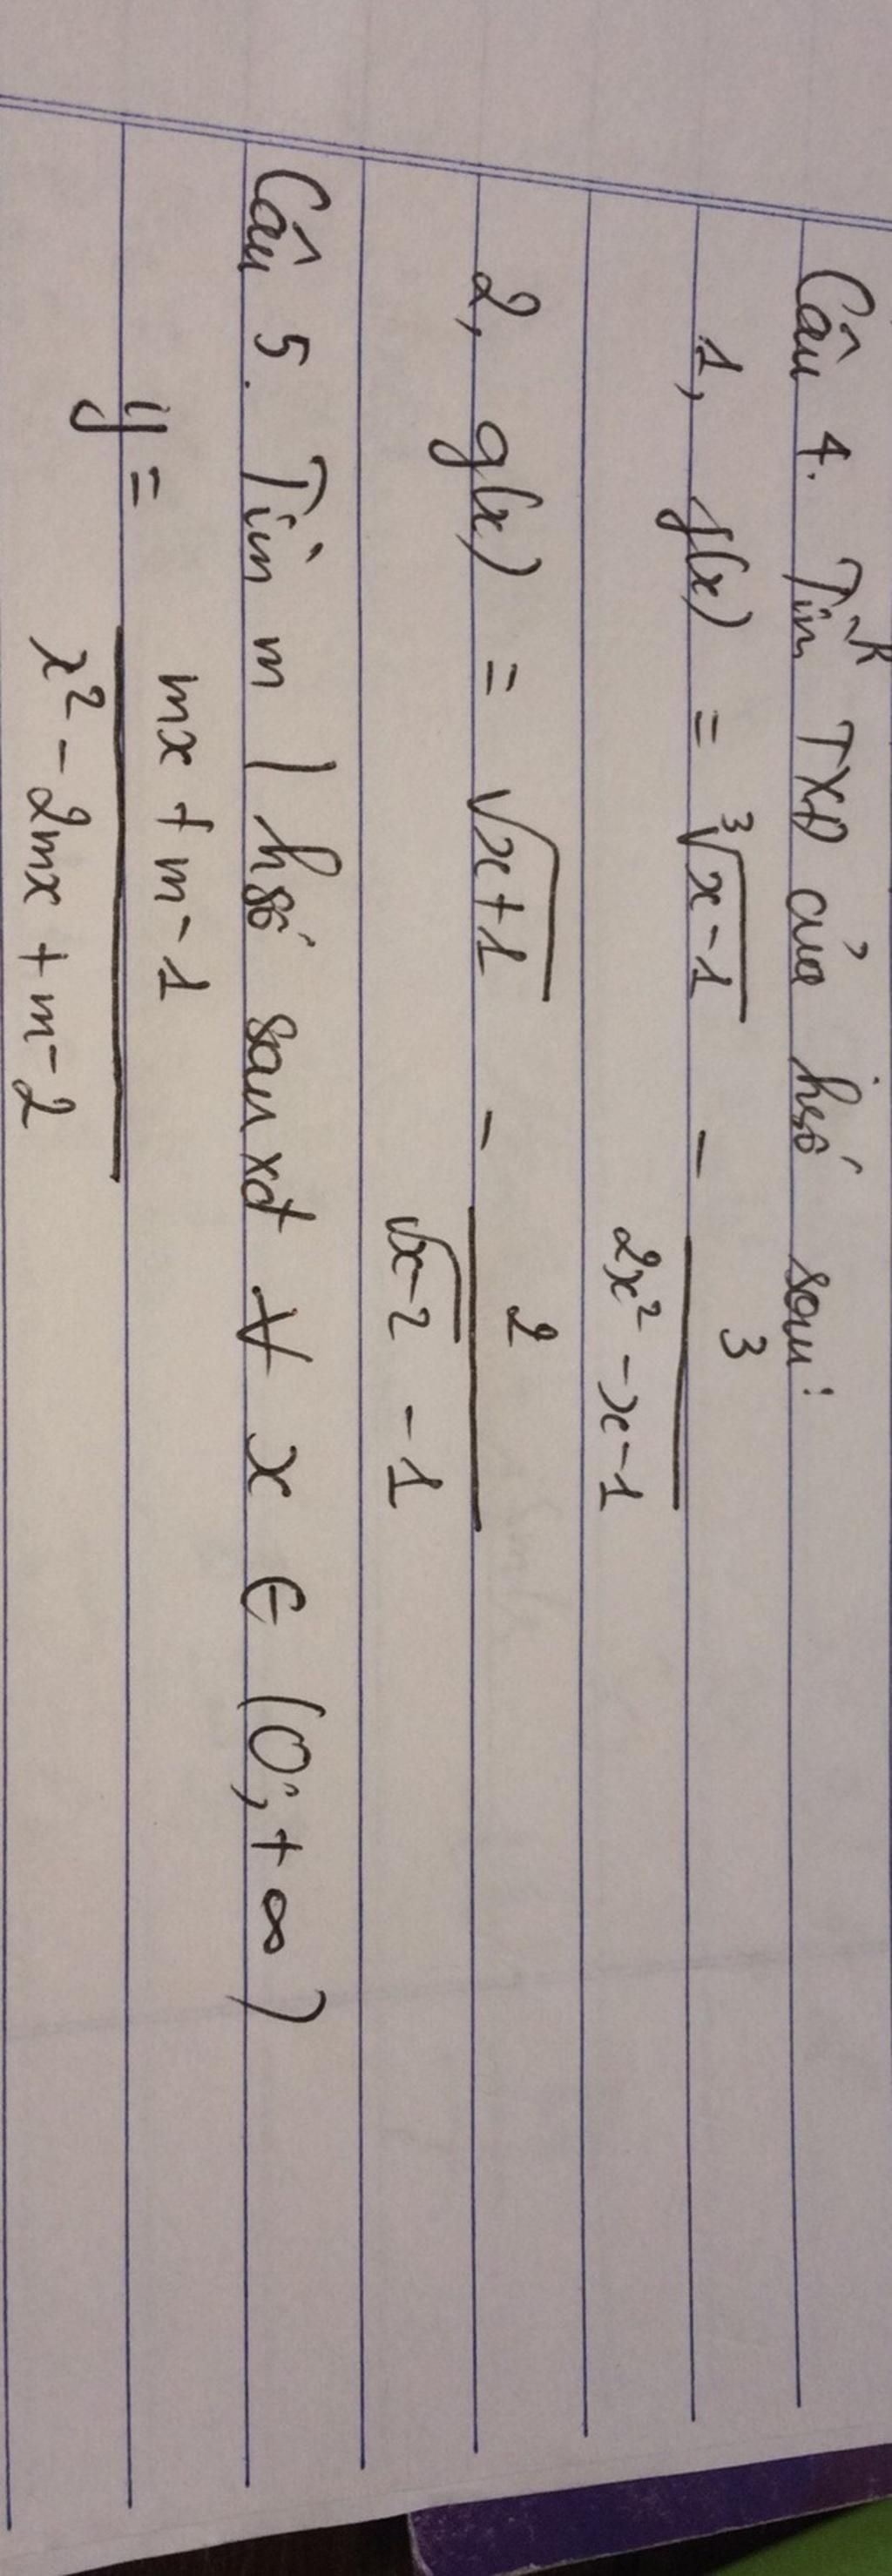 Câu 4. Tìm TXĐ của hsố sau:
1, f(x) = ∛(x-1) - 3/(2x² - x - 1)
2, g(x) = √(x+1) - 2/(√(x-2) - 1)
Câu 5. Tìm m | hsố sau xđ ∀ x ∈ (0; +∞)
y = (mx + m - 1)/(x² - 2mx + m - 2)